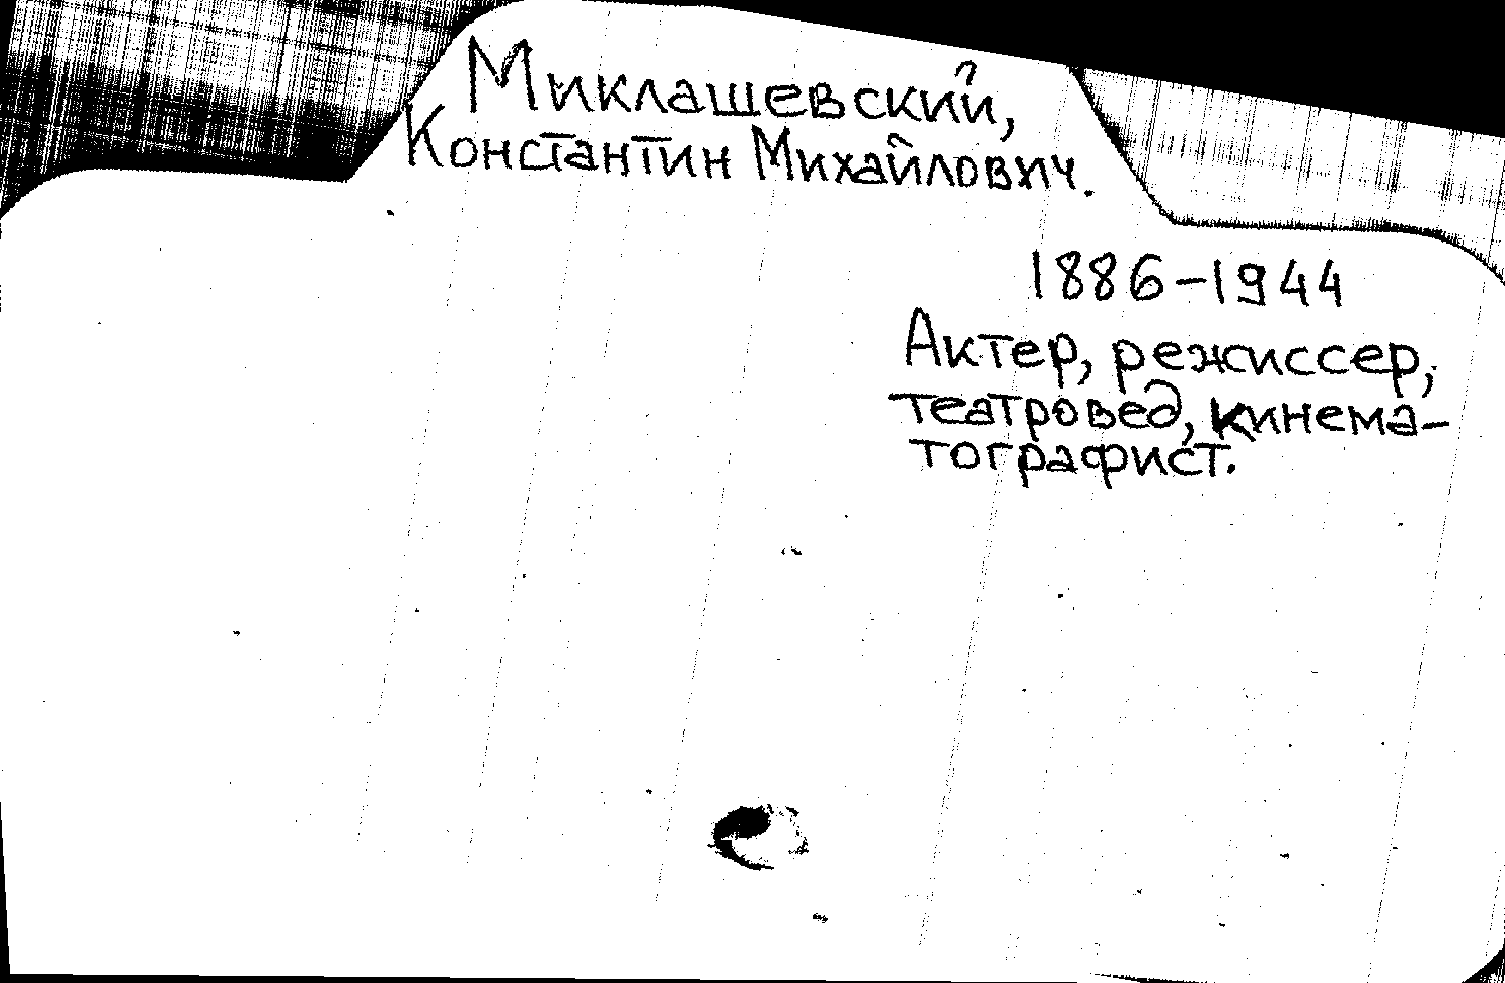 Миклашевский,
Константин Михайлович.
1886-1944
Актер, режиссер,
театровед, кинема-
тографист.